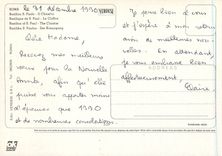 ROMA
le 31 décembre 1990
Basilica S. Paolo - Il Chiostro
Basilique de S. Paul - Le Cloître
Basilica S. Paul - The Cloister
Basilika S. Paulus - Der Kreuzgang
Chère Madame,
Recevez mes meilleurs
vœux pour la Nouvelle
Année, afin qu'elle
puisse vous apporter moins
d'épreuves que 1990
et de nombreuses consolations.
Je pense bien à vous
et j'espère à mon retour
avoir de meilleures nou-
velles. En attendant,
je vous embrasse bien
affectueusement.
Claire